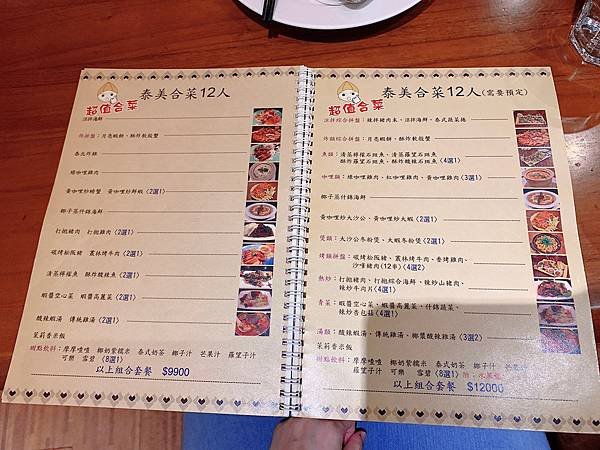 超值合菜
泰美合菜12人
涼拌海鮮
炸拼盤：月亮蝦餅、酥炸軟殼蟹
泰北炸雞
綠咖哩雞肉
黃咖哩炒螃蟹 黃咖哩炒鮮蝦(2選1)
椰子蒸什錦海鮮
打拋豬肉 打拋雞肉(2選1)
碳烤松阪豬 叢林烤牛肉(2選1)
清蒸檸檬魚 酥炸酸辣魚(2選1)
蝦醬空心菜 蝦醬高麗菜(2選1)
酸辣蝦湯 傳統雞湯(2選1)
茉莉香米飯
甜點飲料：摩摩喳喳 椰奶紫糯米 泰式奶茶 椰子汁 芒果汁 羅望子汁
可樂 雪碧(8選1)
以上組合套餐 $9900
超值合菜
泰美合菜12人(需要預定)
涼拌綜合拼盤：辣拌豬肉末、涼拌海鮮、泰式蔬菜捲
炸類綜合拼盤：月亮蝦餅、酥炸軟殼蟹
魚類：清蒸檸檬石斑魚、清蒸羅望石斑魚
酥炸羅望石斑魚、酥炸酸辣石斑魚(4選1)
咖哩類：綠咖哩雞肉、紅咖哩雞肉、黃咖哩雞肉(3選1)
椰子蒸什錦海鮮
黃咖哩炒大沙公、黃咖哩炒大蝦(2選1)
煲類：大沙公冬粉煲、大蝦冬粉煲(2選1)
烤類拼盤：碳烤松阪豬、叢林烤牛肉、香烤雞肉、
沙嗲豬肉(12串)(4選2)
熱炒：打拋豬肉、打拋綜合海鮮、辣炒山豬肉、
辣炒牛肉片(4選1)
青菜：蝦醬空心菜、蝦醬高麗菜、什錦蔬菜、
辣炒杏包菇(4選1)
湯類：酸辣蝦湯、傳統雞湯、椰漿酸辣雞湯(3選2)
茉莉香米飯
甜點飲料：摩摩喳喳 椰奶紫糯米 泰式奶茶 椰子汁 芒果汁
羅望子汁 可樂 雪碧(8選1) 附：水果盤
以上組合套餐 $12000